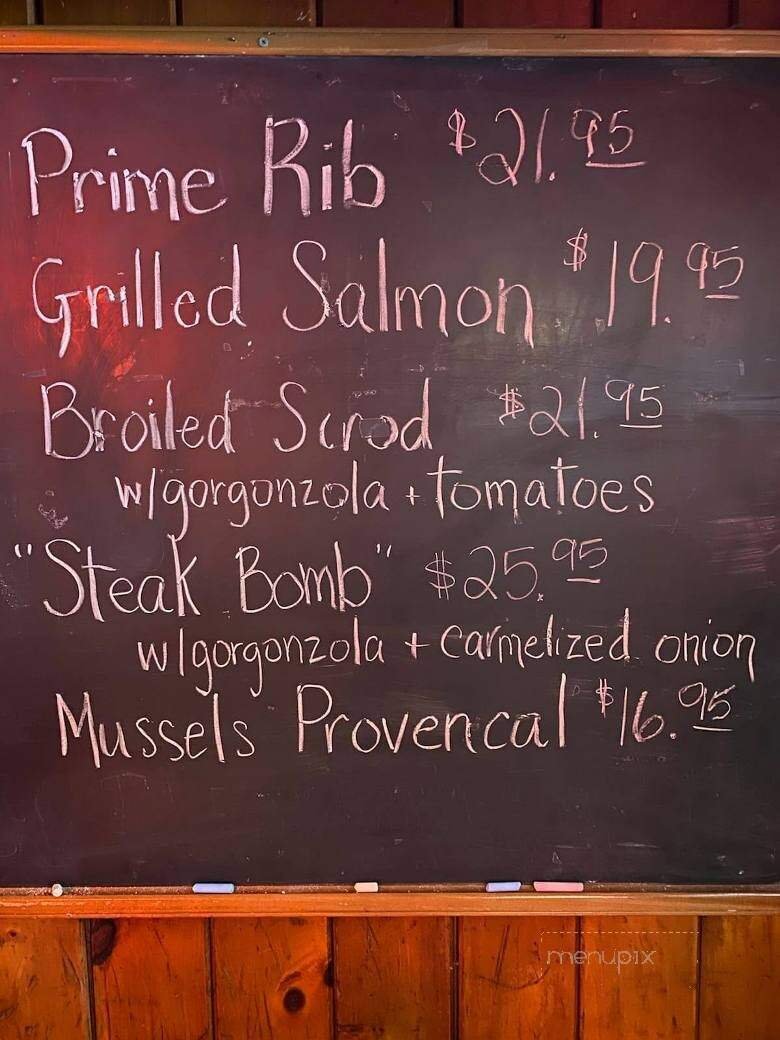 Prime Rib $21.95
Grilled Salmon $19.95
Broiled Scrod $21.95
w/gorgonzola + tomatoes
"Steak Bomb" $25.95
w/gorgonzola + carmelized onion
Mussels Provencal $16.95
menupix